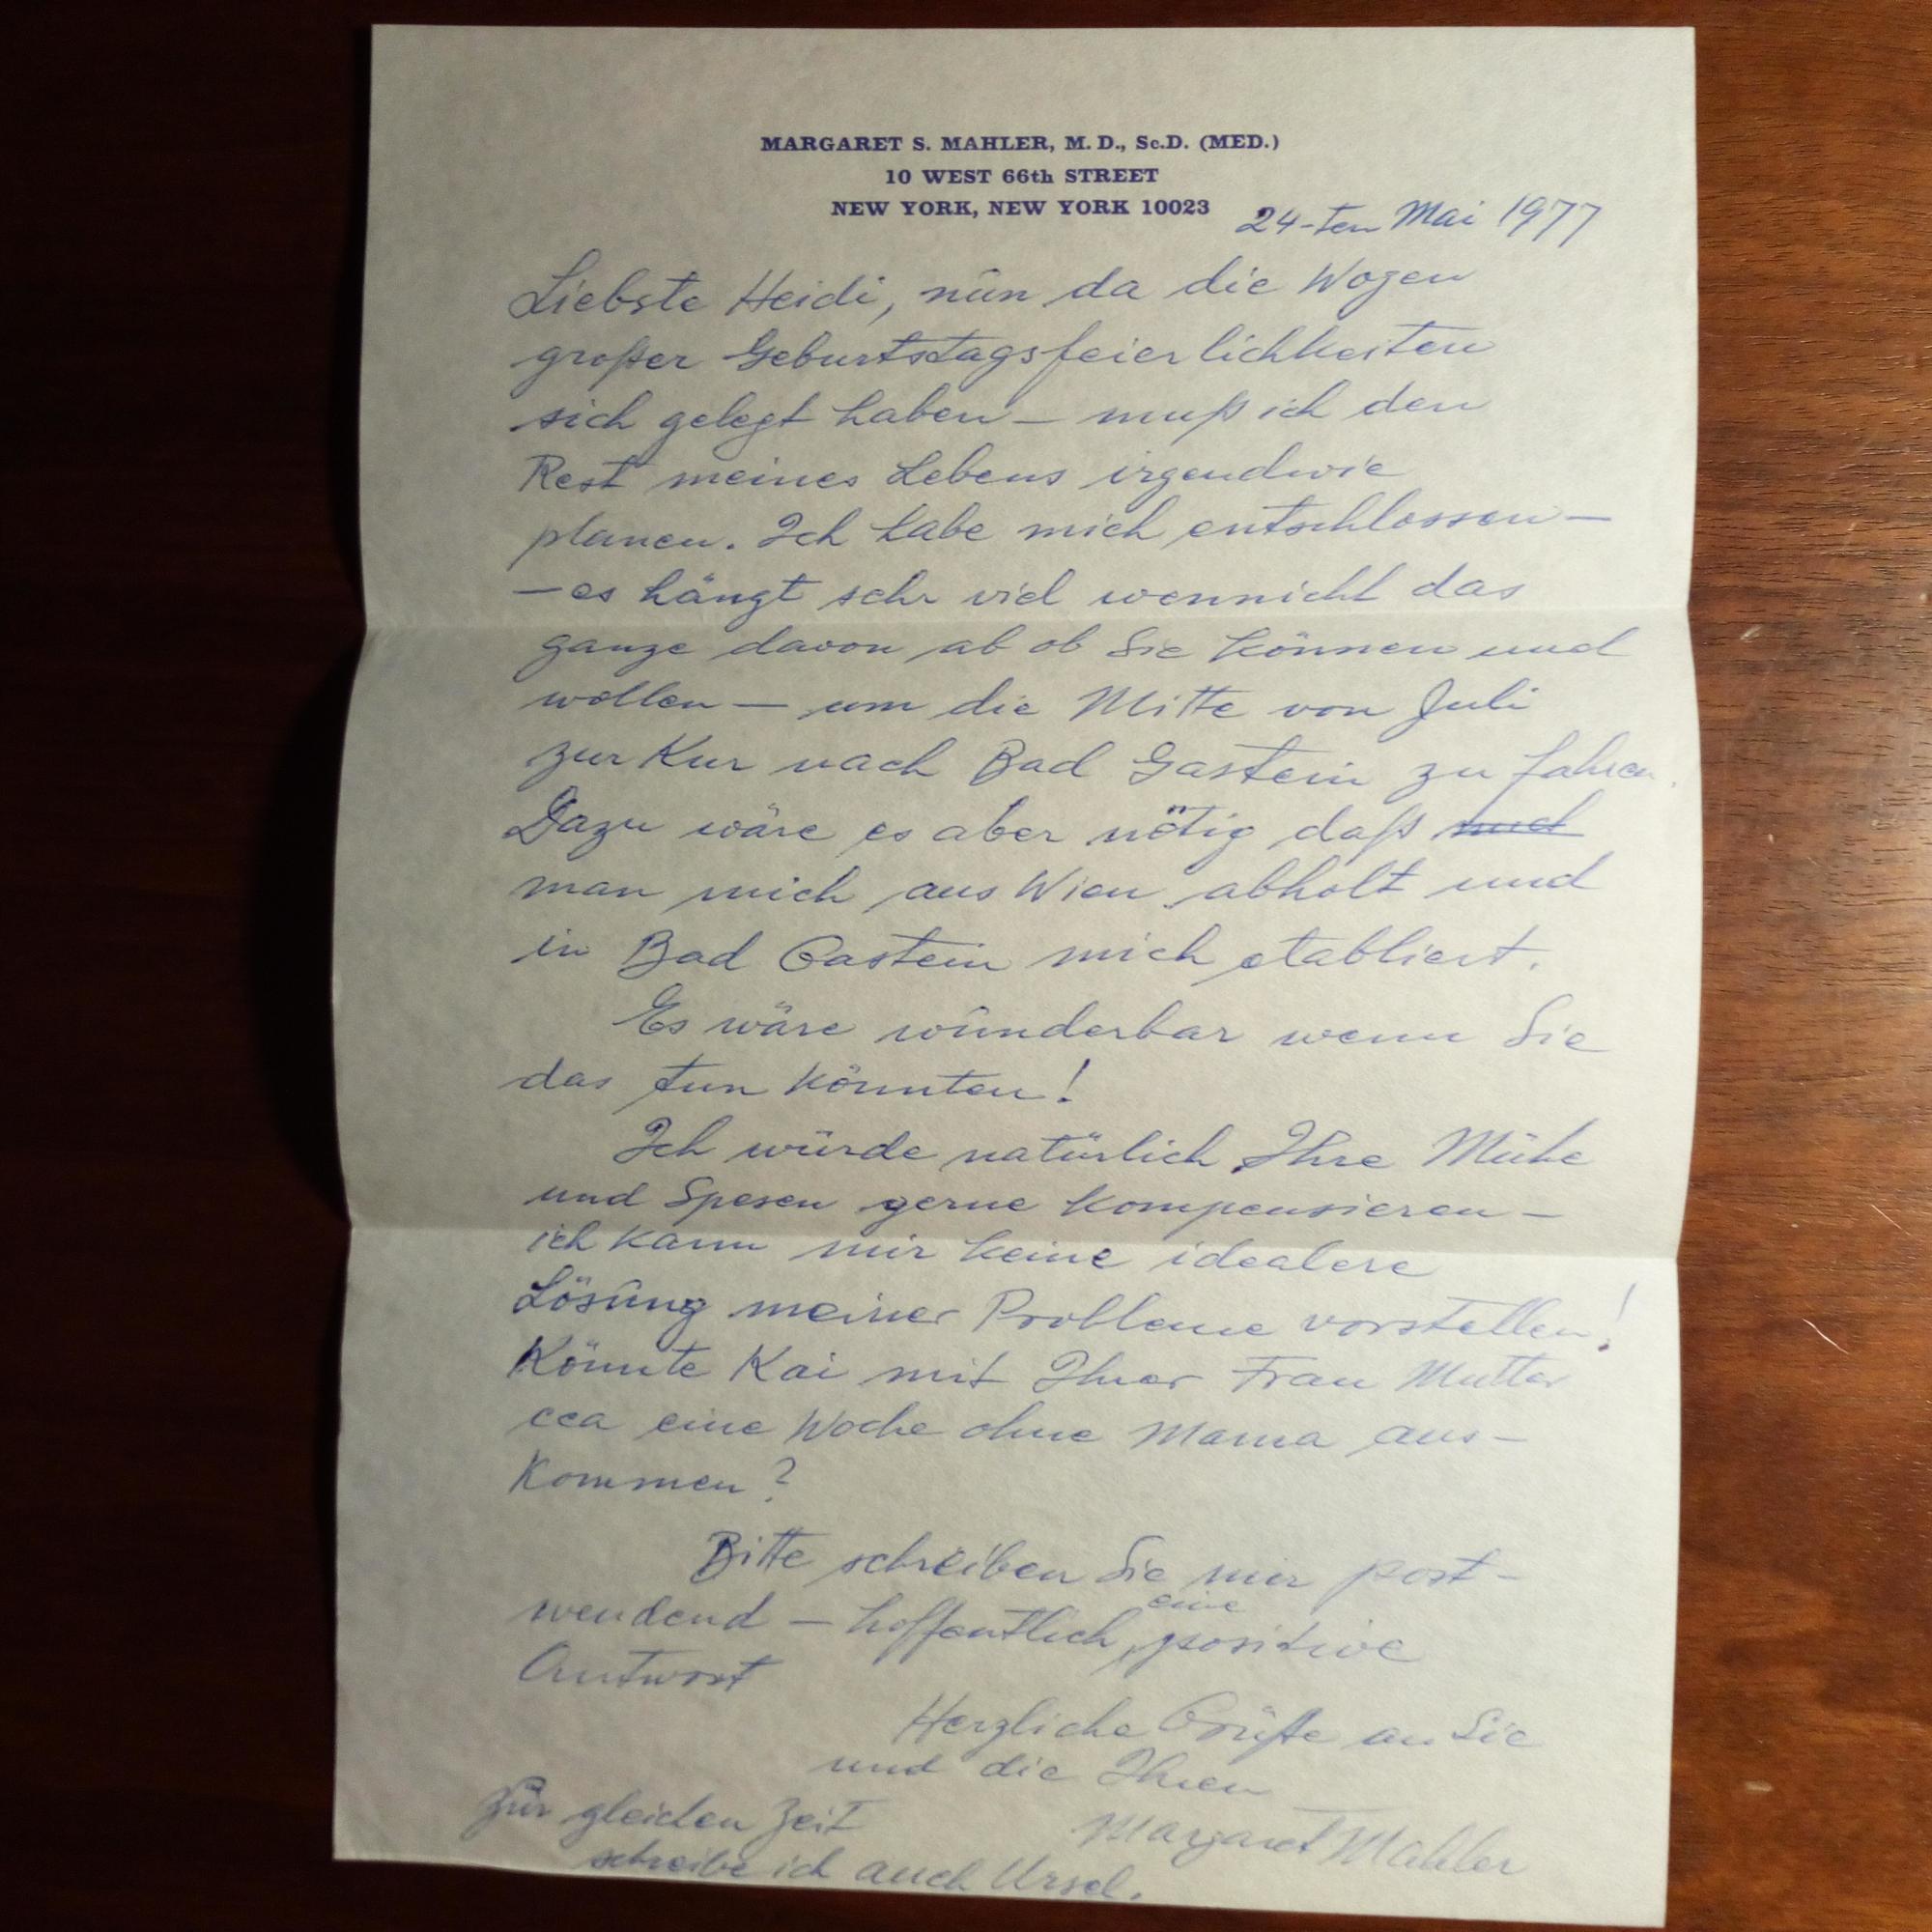 MARGARET S. MAHLER, M. D., Sc.D. (MED.)
10 WEST 66th STREET
NEW YORK, NEW YORK 10023
24-ten Mai 1977
Liebste Heidi, nun da die Wogen
großer Geburtstagsfeierlichkeiten
sich gelegt haben – muß ich den
Rest meines Lebens irgendwie
planen. Ich habe mich entschlossen –
– es hängt sehr viel wennicht das
ganze davon ab ob Sie können und
wollen – um die Mitte von Juli
zur Kur nach Bad Gastein zu fahren.
Dazu wäre es aber nötig daß
man mich aus Wien abholt und
in Bad Gastein mich etabliert.
Es wäre wunderbar wenn Sie
das tun könnten!
Ich würde natürlich Ihre Mühe
und Spesen gerne kompensieren –
ich kann mir keine idealere
Lösung meiner Probleme vorstellen!
Könnte Kai mit Ihrer Frau Mutter
cca eine Woche ohne Mama aus-
kommen?
Bitte schreiben Sie mir post-
wendend – hoffentlich eine positive
Antwort
Herzliche Grüße an Sie
und die Ihren
Margaret Mahler
Zur gleichen Zeit
schreibe ich auch Ursel.